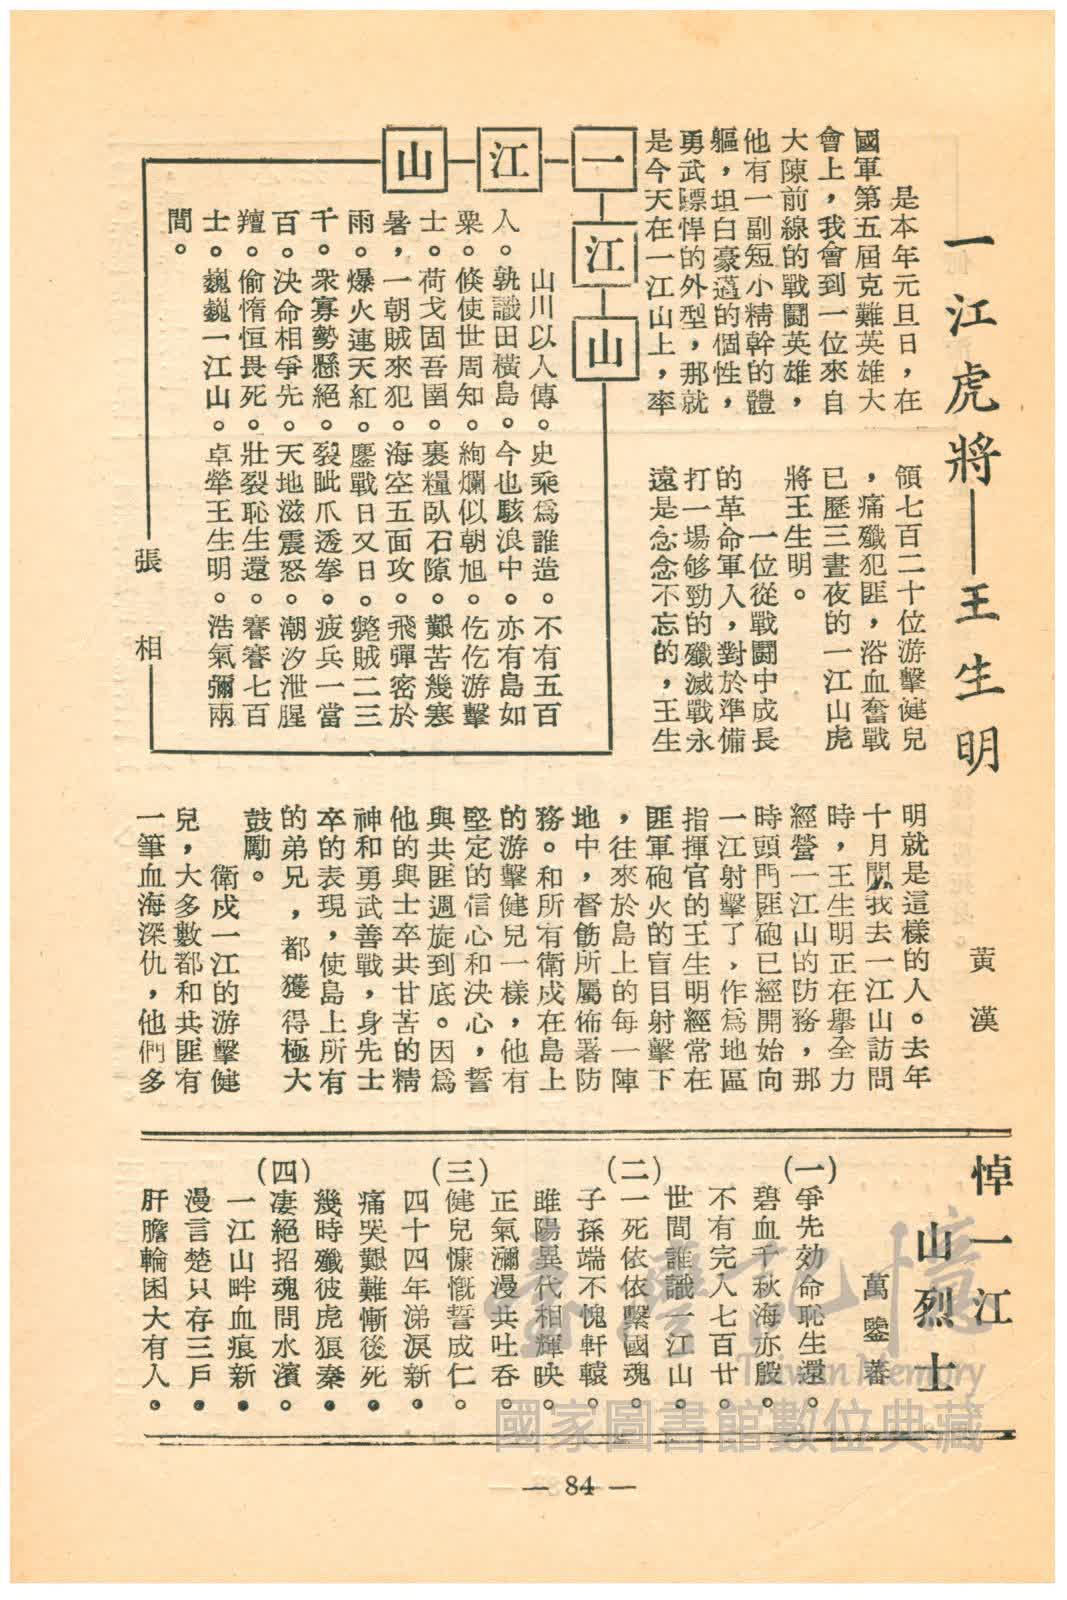 一江虎將——王生明
黃漢
是本年元旦日，在
國軍第五屆克難英雄大
會上，我會到一位來自
大陳前線的戰鬪英雄，
他有一副短小精幹的體
軀，坦白豪邁的個性，
勇武驃悍的外型，那就
是今天在一江山上，率
領七百二十位游擊健兒
，痛殲犯匪，浴血奮戰
已歷三晝夜的一江山虎
將王生明。
一位從戰鬪中成長
的革命軍人，對於準備
打一場够勁的殲滅戰永
遠是念念不忘的，王生
明就是這樣的人。去年
十月間，我去一江山訪問
時，王生明正在舉全力
經營一江山的防務，那
時頭門匪砲已經開始向
一江射擊了，作爲地區
指揮官的王生明經常在
匪軍砲火的盲目射擊下
，往來於島上的每一陣
地中，督飭所屬佈署防
務。和所有衛戍在島上
的游擊健兒一樣，他有
堅定的信心和決心，誓
與共匪週旋到底。因爲
他的與士卒共甘苦的精
神和勇武善戰，身先士
卒的表現，使島上所有
的弟兄，都獲得極大
鼓勵。
衛戍一江的游擊健
兒，大多數都和共匪有
一筆血海深仇，他們多
一江山
江山
張相
山川以人傳。史乘爲誰造。不有五百
人。孰識田橫島。今也駭浪中。亦有島如
粟。倏使世周知。絢爛似朝旭。仡仡游擊
士。荷戈固吾圉。裹糧臥石隙。艱苦幾寒
暑，一朝賊來犯。海空五面攻。飛彈密於
雨。爆火連天紅。鏖戰日又日。斃賊二三
千。衆寡勢懸絕。裂眦爪透拳。疲兵一當
百。決命相爭先。天地滋震怒。潮汐泄腥
羶。偷惰恒畏死。壯裂恥生還。謇謇七百
士。巍巍一江山。卓犖王生明。浩氣彌兩
間。
悼一江
山烈士
萬鑒蕃
(一)爭先効命恥生還。
碧血千秋海亦殷。
不有完人七百廿。
世間誰識一江山。
(二)一死依依繫國魂。
子孫端不愧軒轅。
雎陽異代相輝映。
正氣瀰漫共吐吞。
(三)健兒慷慨誓成仁。
四十四年涕淚新。
痛哭艱難慚後死。
幾時殲彼虎狼秦。
(四)凄絕招魂問水濱。
一江山畔血痕新。
漫言楚只存三戶。
肝膽輪囷大有人。
臺灣記憶
Taiwan Memory
國家圖書館數位典藏
— 84 —